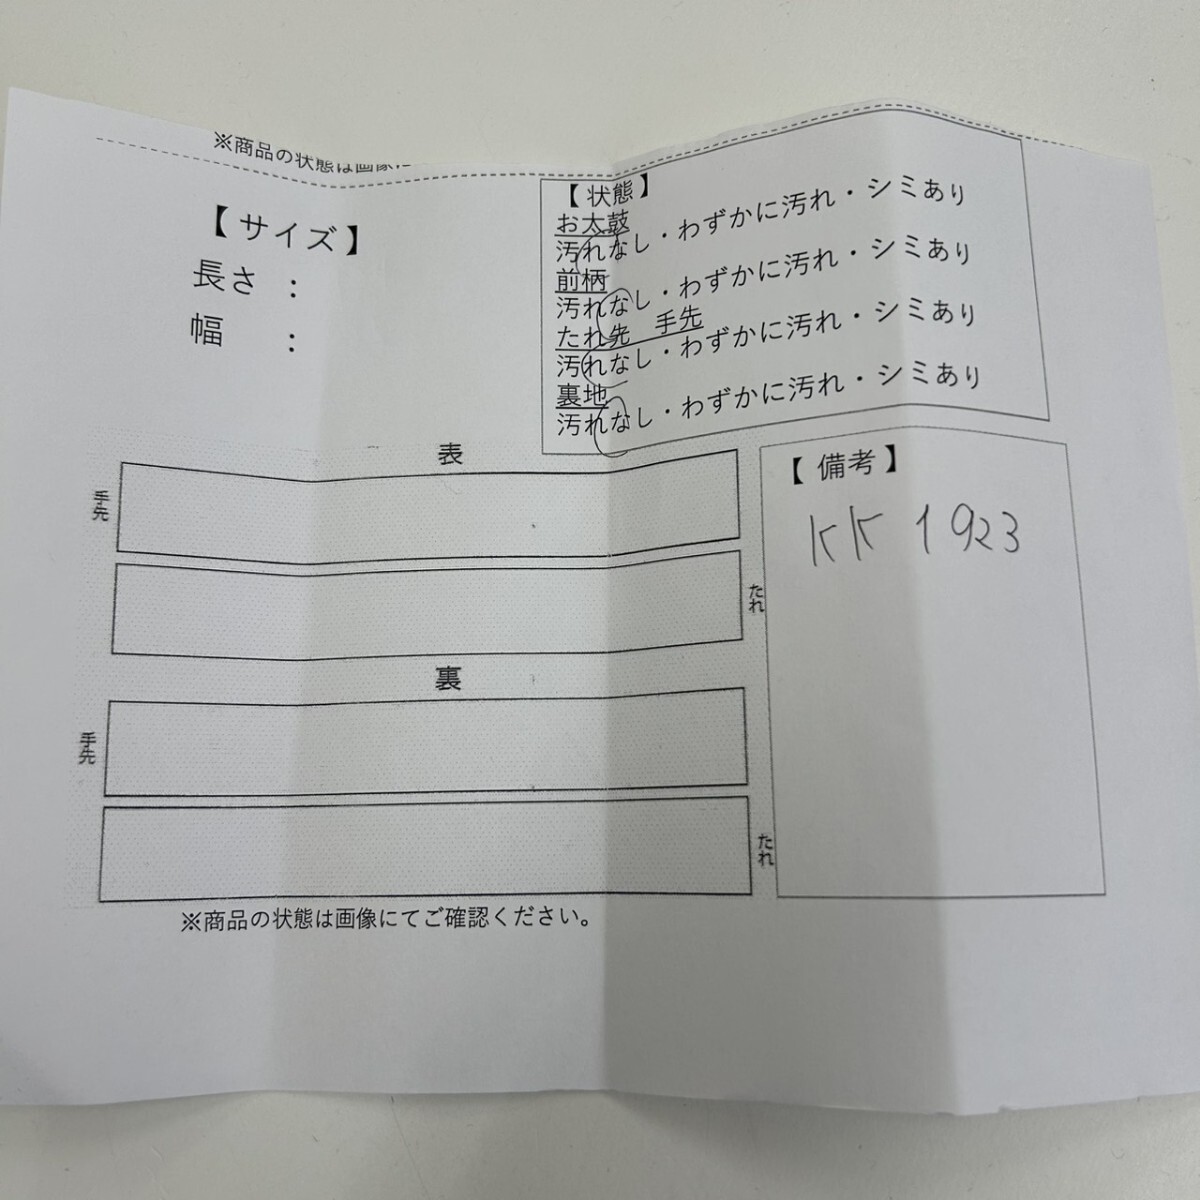 ※商品の状態は画像に
【サイズ】
長さ ：
幅 ：
【状態】
お太鼓
汚れなし・わずかに汚れ・シミあり
前柄
汚れなし・わずかに汚れ・シミあり
たれ先 手先
汚れなし・わずかに汚れ・シミあり
裏地
汚れなし・わずかに汚れ・シミあり
表
手先
たれ
裏
手先
たれ
【備考】
KK 1923
※商品の状態は画像にてご確認ください。